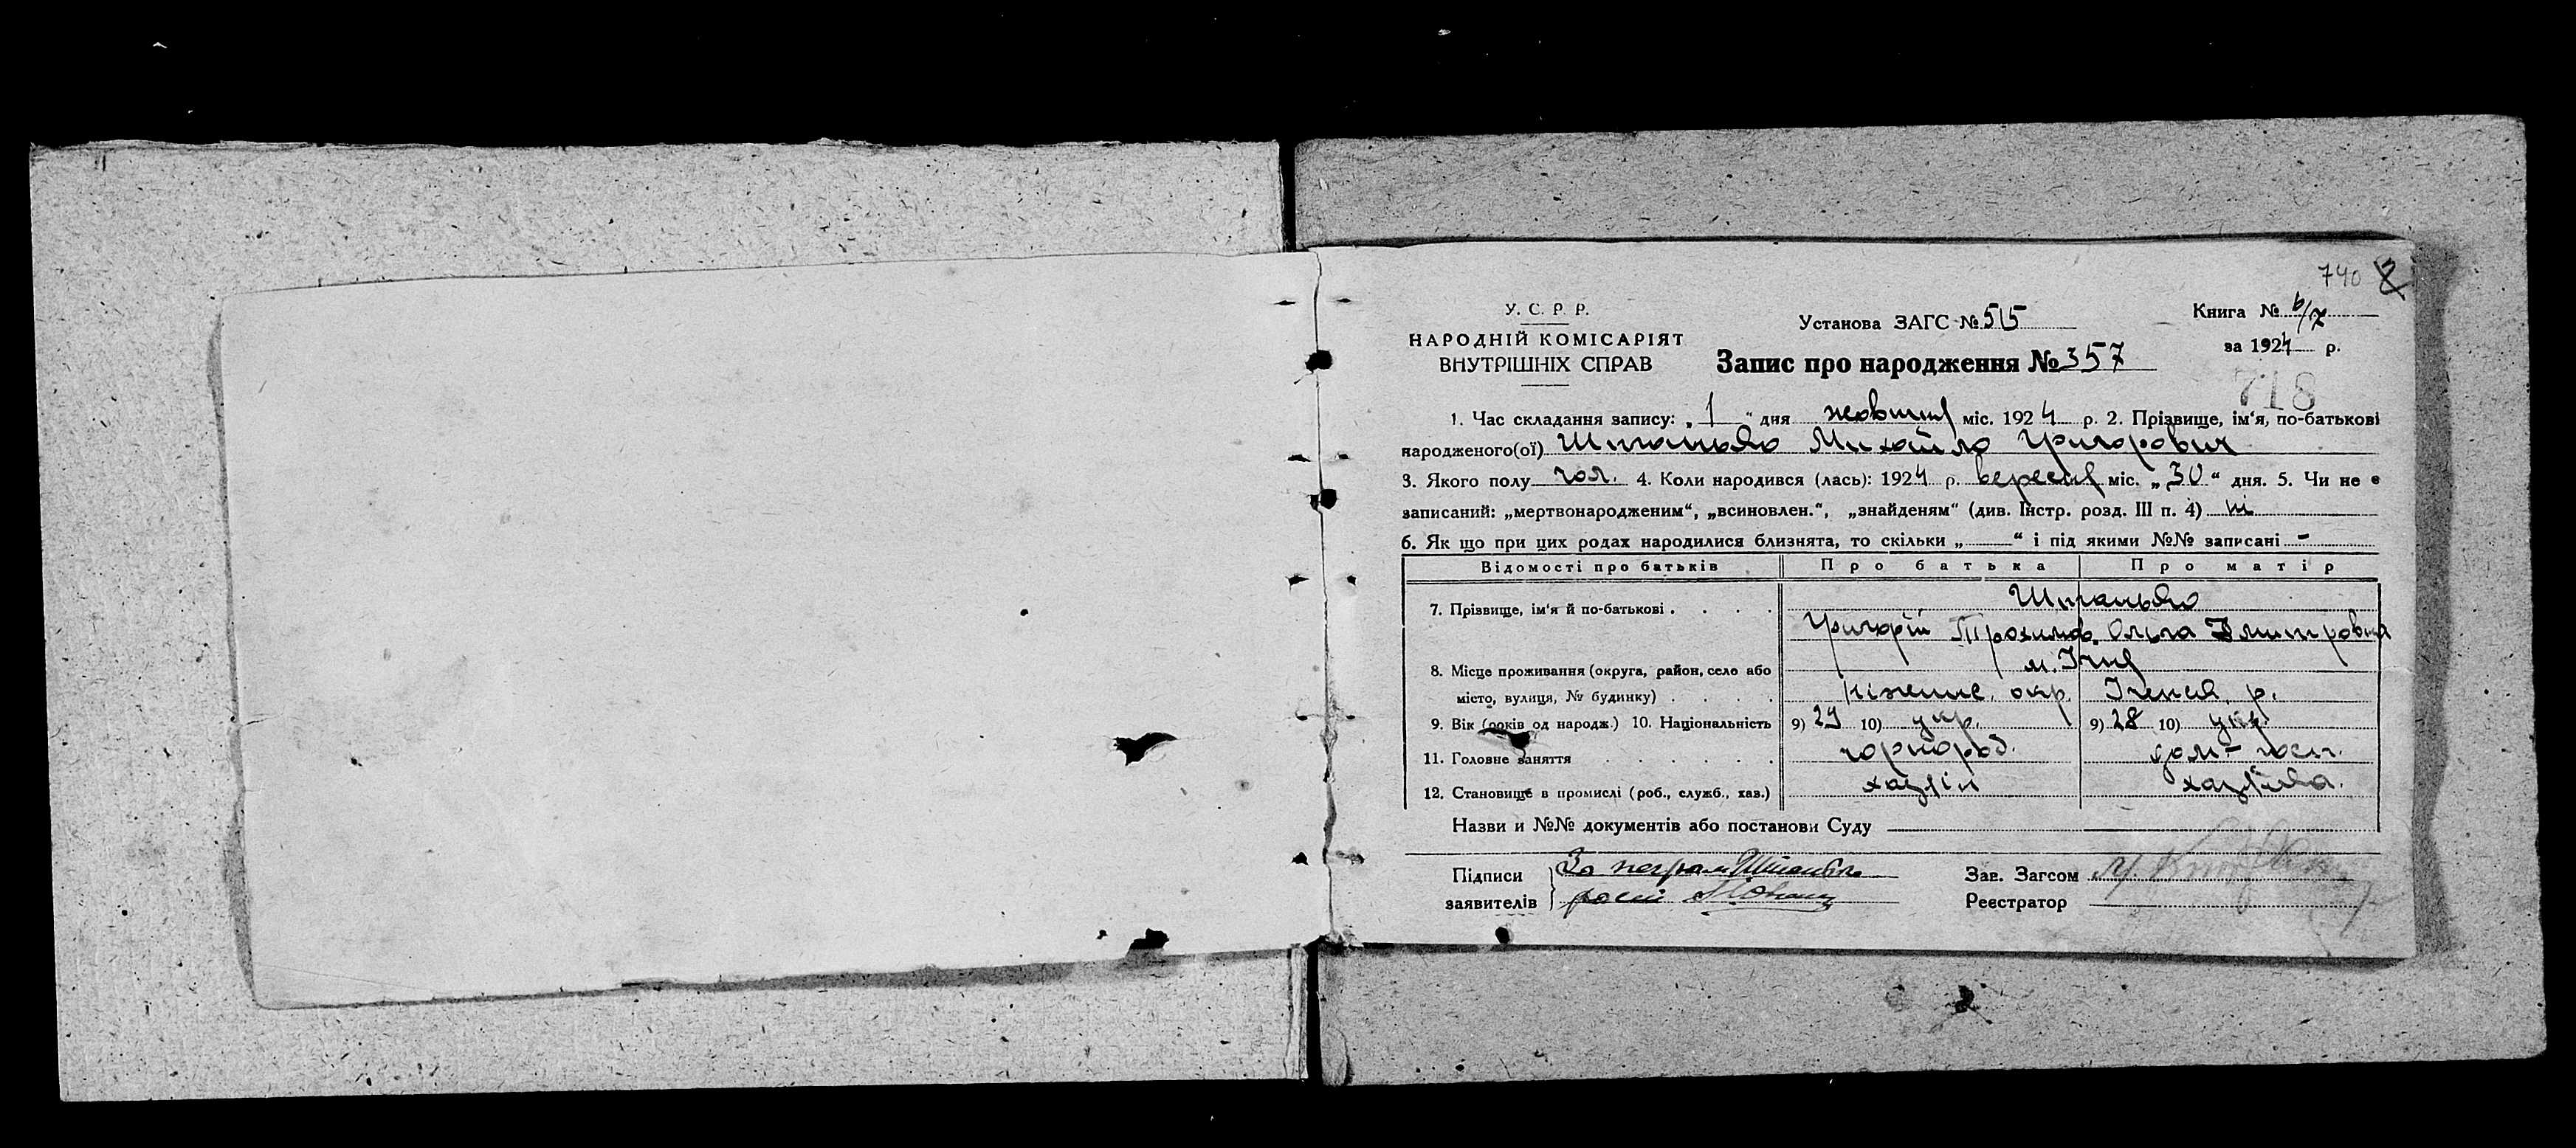 740
У. С. Р. Р.
НАРОДНІЙ КОМІСАРІЯТ
ВНУТРІШНІХ СПРАВ
Установа ЗАГС № 515
Книга №
за 1924 р.
Запис про народження № 357
718
1. Час складання запису: „ 1 " дня жовтня міс. 1924 р. 2. Прізвище, ім'я, по-батькові
народженого(ої) Михайло Григорович
3. Якого полу чол. 4. Коли народився (лась): 1924 р. вересня міс. „ 30 " дня. 5. Чи не є
записаний: „мертвонародженим", „всиновлен.", „знайденям" (див. Інстр. розд. III п. 4) ні
6. Як що при цих родах народилися близнята, то скільки „ — " і під якими №№ записані -
Відомості про батьків Про батька Про матір
7. Прізвище, ім'я й по-батькові . . . .
Григорій Трохимов. Ольга Дмитровна
8. Місце проживання (округа, район, село або м. Ічня
місто, вулиця, № будинку) . . . . ніженс. окр. Іченск. р.
9. Вік (років од народж.) 10. Національність 9) 29 10) укр. 9) 28 10) укр.
11. Головне заняття . . . . . . чорнороб. дом-госп.
12. Становище в промислі (роб., служб., хаз.) хазяін хазяйка.
Назви и №№ документів або постанови Суду
Підписи За неграм.
заявителів
Зав. Загсом
Реєстратор